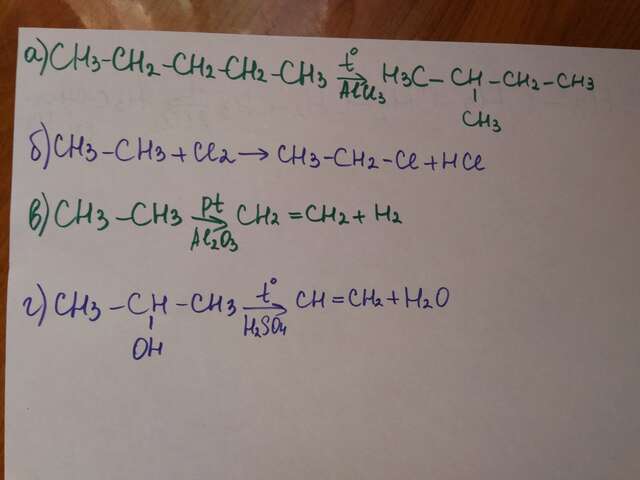 а) CH3-CH2-CH2-CH2-CH3 t° AlCl3 → H3C-CH-CH2-CH3
CH3
б) CH3-CH3+Cl2→CH3-CH2-Cl+HCl
в) CH3-CH3 pt Al2O3 → CH2=CH2+H2
г) CH3-CH-CH3 t° H2SO4 → CH=CH2+H2O
OH